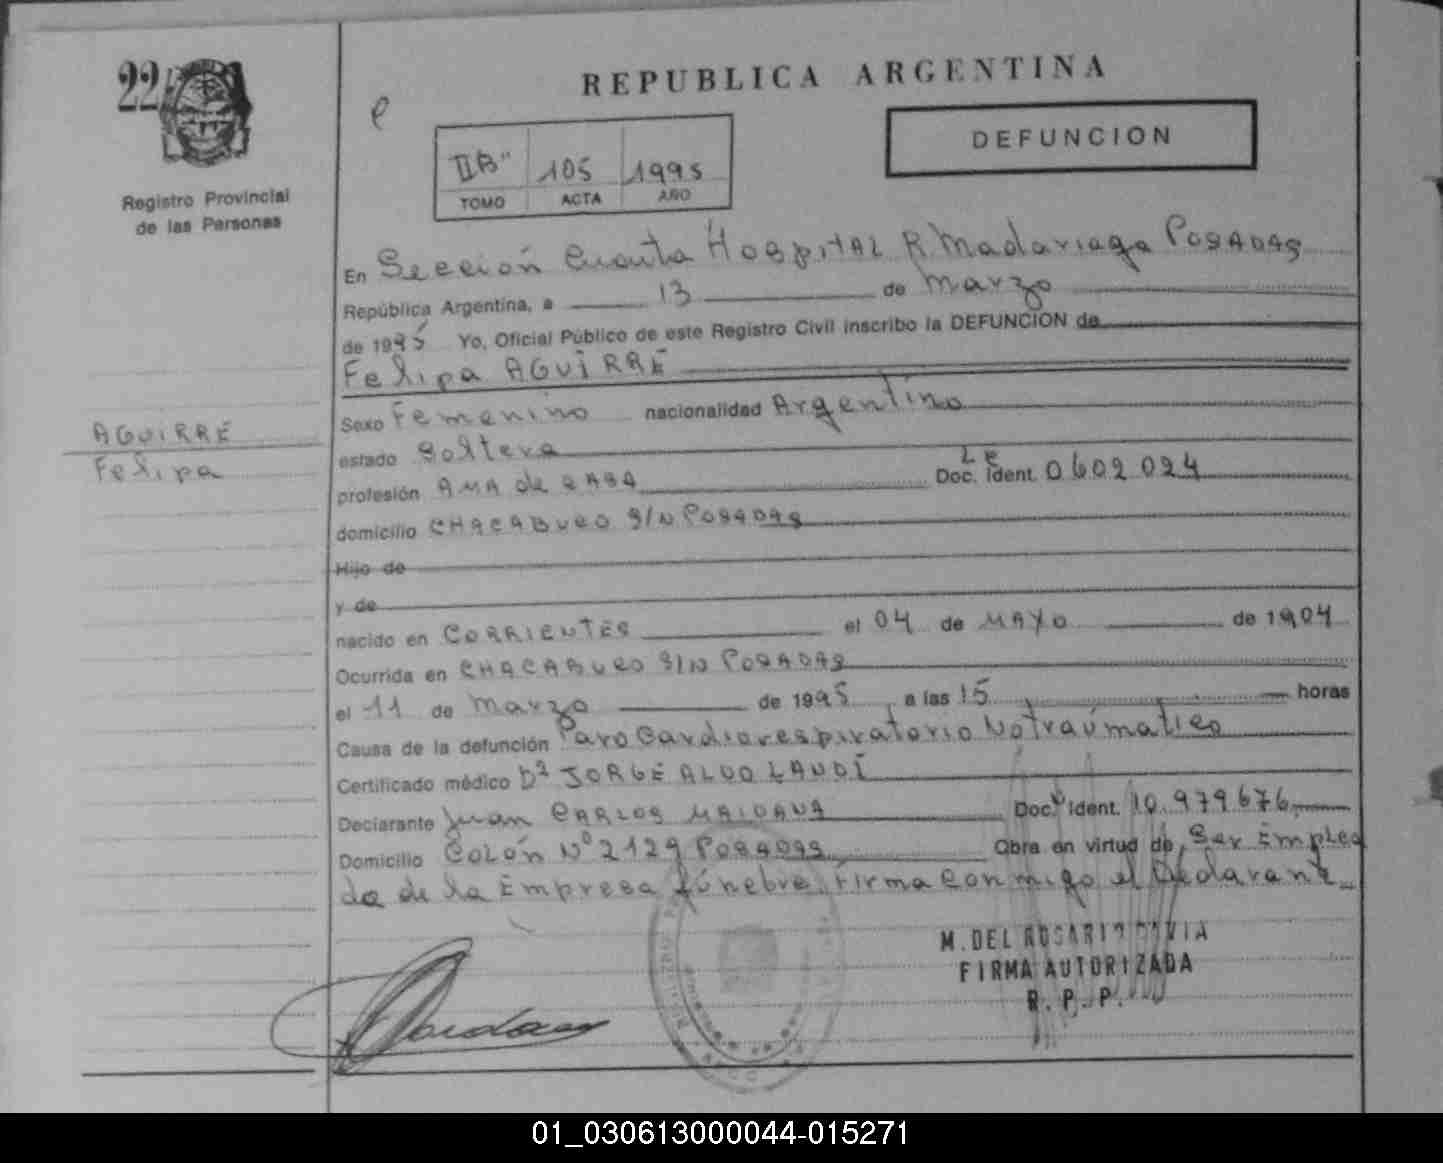 22
REPUBLICA ARGENTINA
DEFUNCION
II B" 105 1995
TOMO ACTA AÑO
Registro Provincial
de las Personas
En Sección Cuarta Hospital R. Madariaga Posadas
República Argentina, a 13 de Marzo
de 1995 Yo, Oficial Público de este Registro Civil inscribo la DEFUNCION de
Felipa AGUIRRE
AGUIRRE
Felipa
Sexo Femenino nacionalidad Argentino
estado Soltera
profesión AMA de CASA Doc. Ident. LC 0602024
domicilio CHACABUCO S/N POSADAS
Hijo de
y de
nacido en CORRIENTES el 04 de MAYO de 1904
Ocurrida en CHACABUCO S/N POSADAS
el 11 de Marzo de 1995, a las 15 horas
Causa de la defunción Paro Cardiorespiratorio No traúmatico
Certificado médico Dr JORGE ALDO LANDI
Declarante Juan CARLOS MAIDANA Doc. Ident. 10.979.676
Domicilio COLÓN Nº 2129 POSADAS Obra en virtud de Ser Emplea
do de la Empresa fúnebre, Firma Conmigo el Declarante
M. DEL ROSARIO
FIRMA AUTORIZADA
R. P. P.
01_030613000044-015271